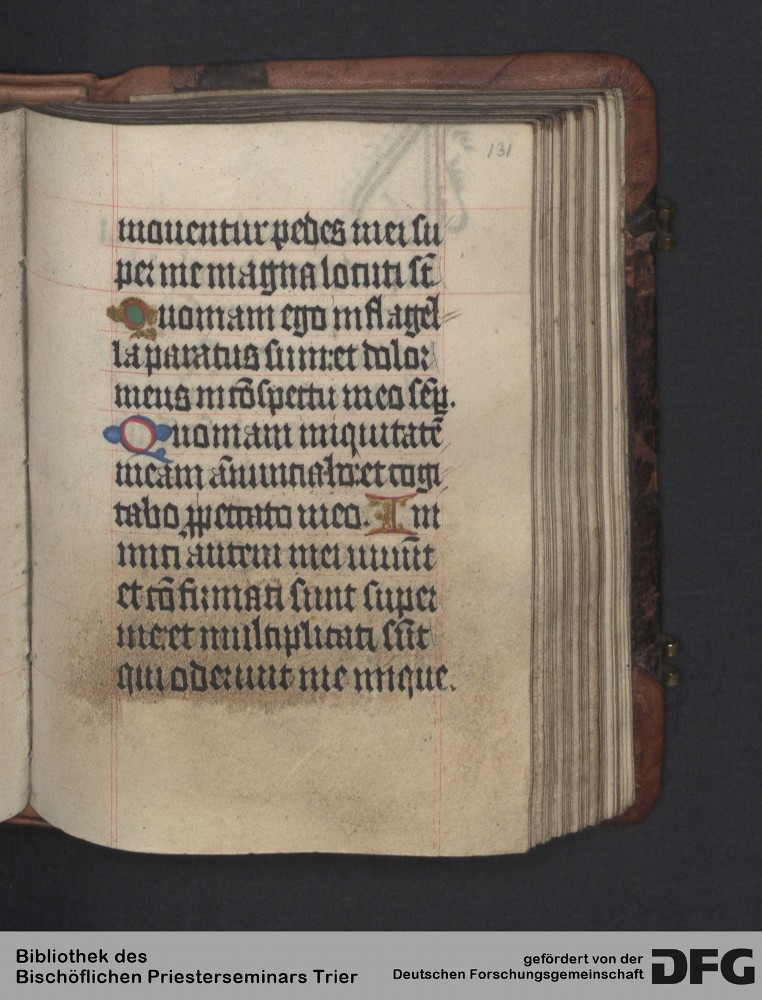 131
mouentur pedes mei su
per me magna locuti st̄
Quoniam ego in flagel
la paratus sum: et dolor
meus in cōspectu meo sēp.
Quoniam iniquitatē
meam ānunciabo: et cogi
tabo ꝓ peccato meo. Ini
mici autem mei uiuūt
et cōfirmati sunt super
me: et multiplicati sūt
qui oderunt me inique.
Bibliothek des
Bischöflichen Priesterseminars Trier
gefördert von der
Deutschen Forschungsgemeinschaft
DFG